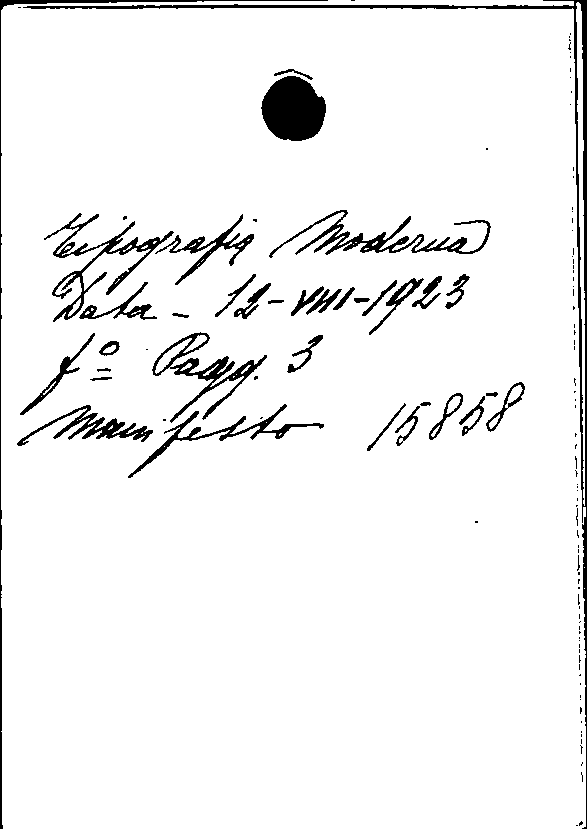 Tipografia Moderna
Data - 12-VIII-1923
fº Pagg. 3
Manifesto 15858